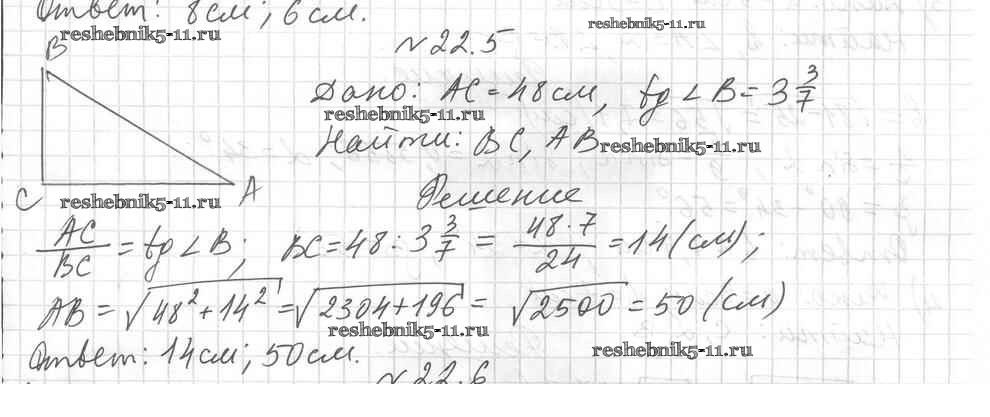 Ответ: 8см; 6см.
reshebnik5-11.ru
reshebnik5-11.ru
№22.5
B
Дано: AC = 48см, tg∠B = 3 3/7
reshebnik5-11.ru
Найти: BC, AB
reshebnik5-11.ru
C
A
reshebnik5-11.ru
Решение
AC/BC = tg∠B; BC = 48 : 3 3/7 = 48·7/24 = 14(см);
AB = √48²+14² = √2304+196 = √2500 = 50 (см)
reshebnik5-11.ru
Ответ: 14см; 50см.
reshebnik5-11.ru
№22.6